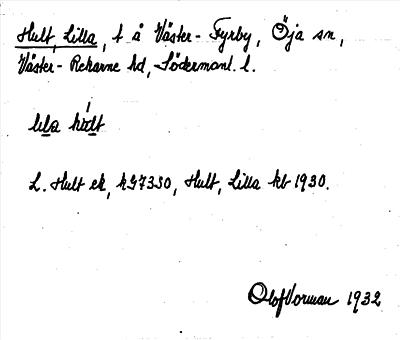 Hult, Lilla, t å Väster-Fyrby, Öja sn,
Väster-Rekarne hd, Södermanl. l.
lila hult
L. Hult ek, hG7350, Hult, Lilla kb 1930.
Olof Vorman 1932